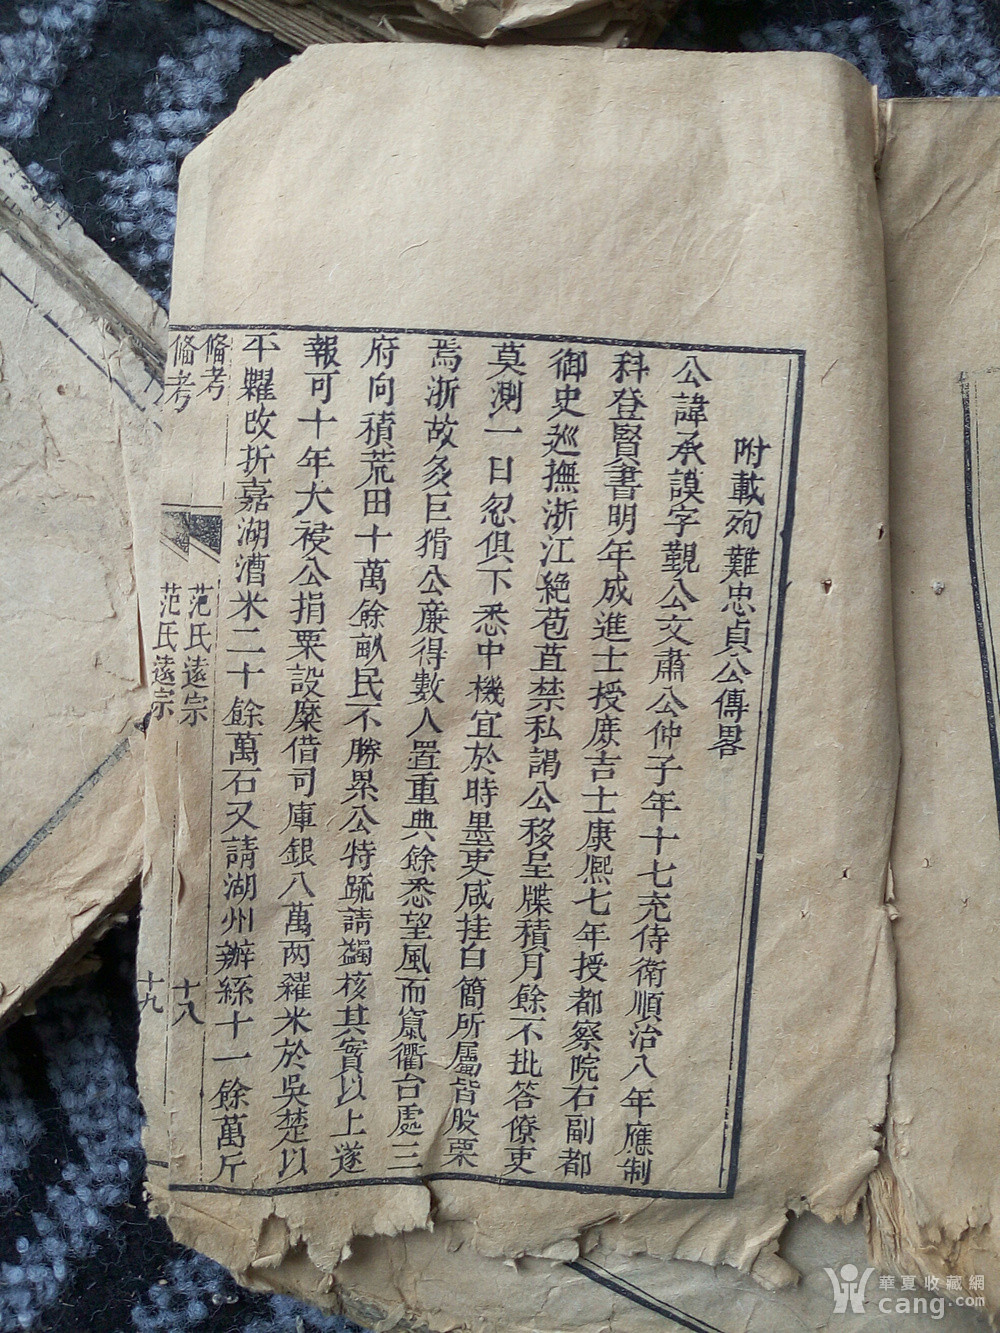 附載殉難忠貞公傳畧
公諱承謨字覲公文肅公仲子年十七充侍衛順治八年應制
科登賢書明年成進士授庶吉士康熙七年授都察院右副都
御史巡撫浙江絶苞苴禁私謁公移呈牒積月餘不批答僚吏
莫測一日忽俱下悉中機宜於時墨吏咸挂白簡所屬皆股栗
焉浙故多巨猾公廉得數人置重典餘悉望風而竄衢台處三
府向積荒田十萬餘畝民不勝累公特疏請蠲核其實以上遂
報可十年大祲公捐粟設糜借司庫銀八萬两糴米於吳楚以
平糶改折嘉湖漕米二十餘萬石又請湖州辦絲十一餘萬斤
俻考 范氏遠宗 十八
俻考 范氏遠宗 十九
華夏收藏網
cang.com